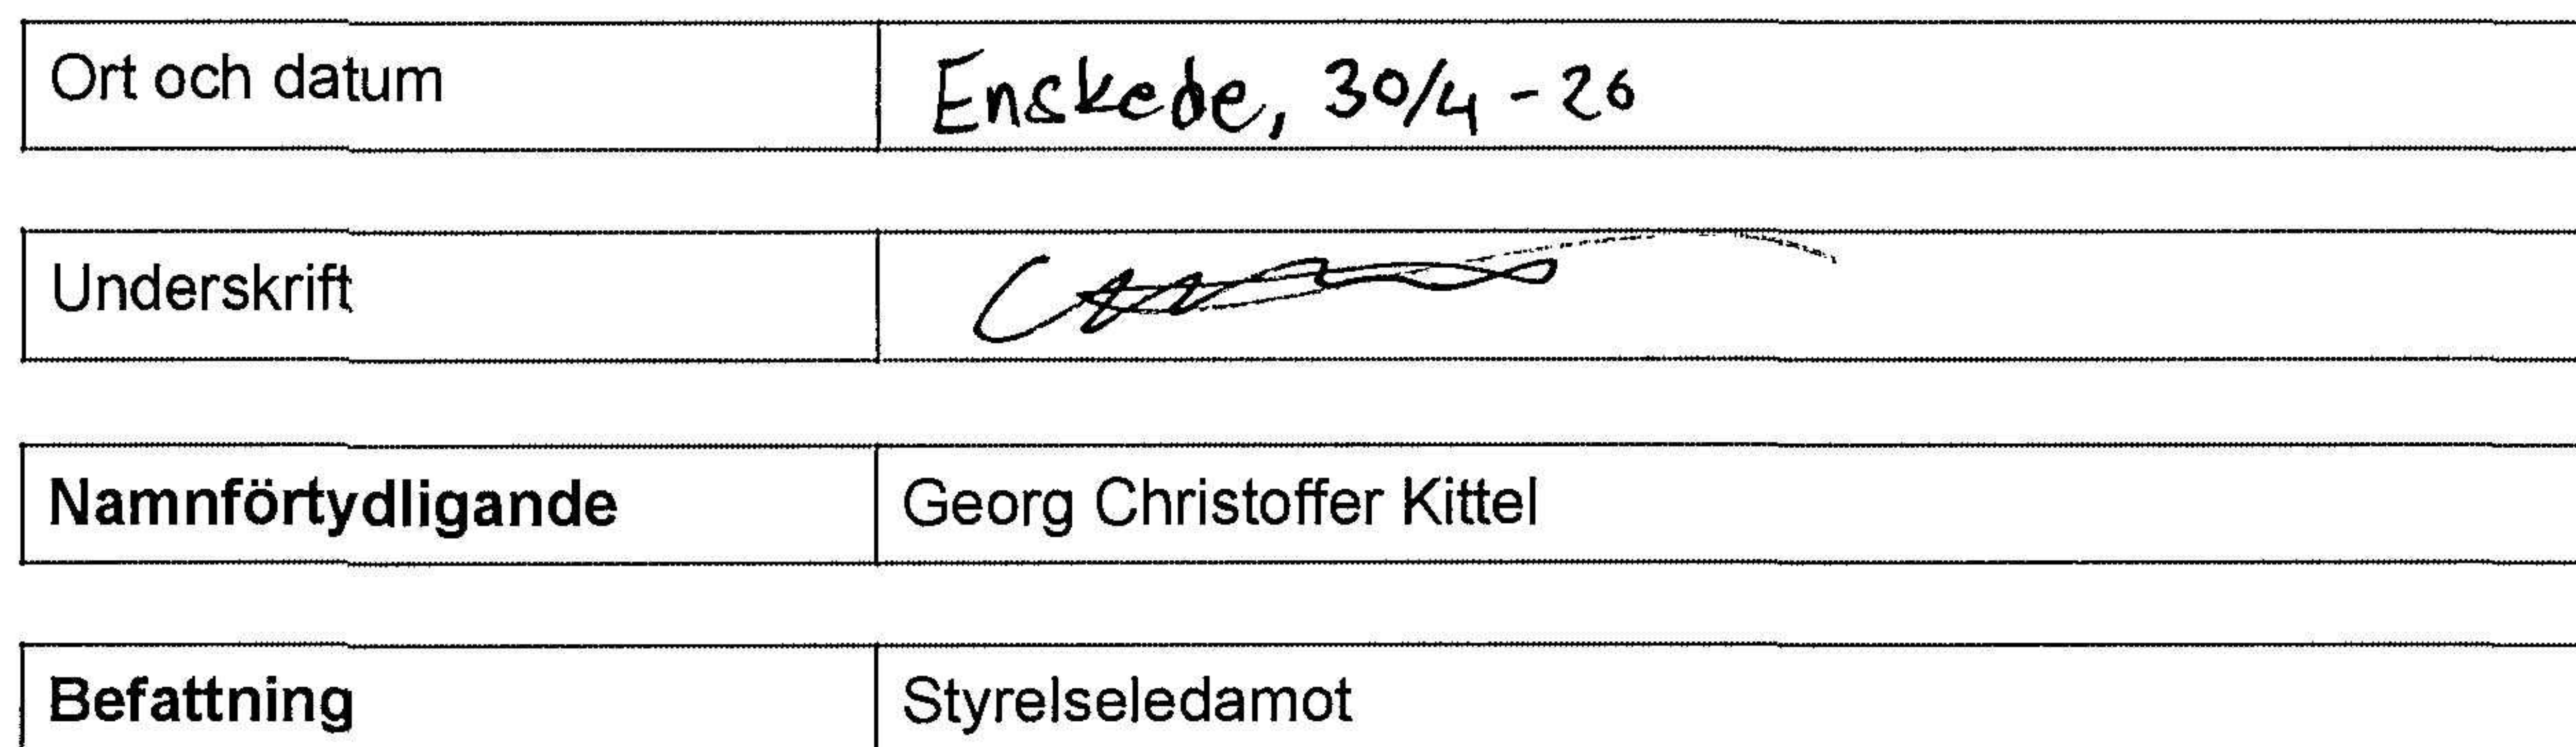 Ort och datum Enskede, 30/4 - 26
Underskrift
Namnförtydligande Georg Christoffer Kittel
Befattning Styrelseledamot